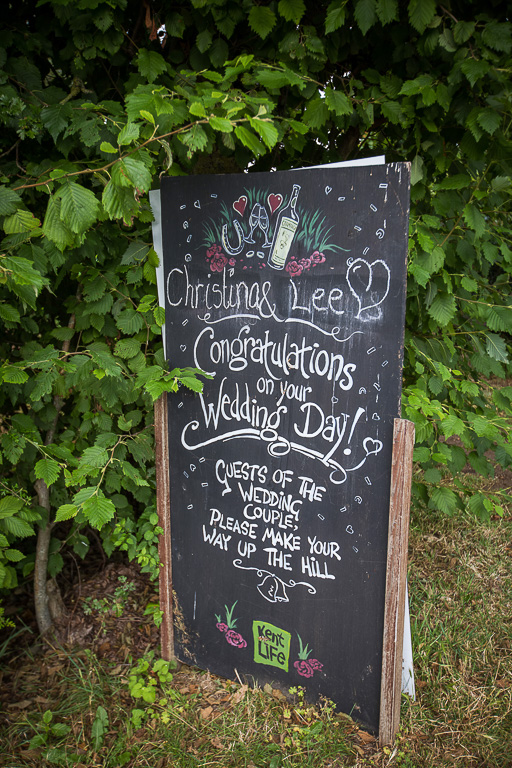 Christina & Lee
Congratulations
on your
Wedding Day!
GUESTS OF THE
WEDDING
COUPLE,
PLEASE MAKE YOUR
WAY UP THE HILL
Kent
LIFE